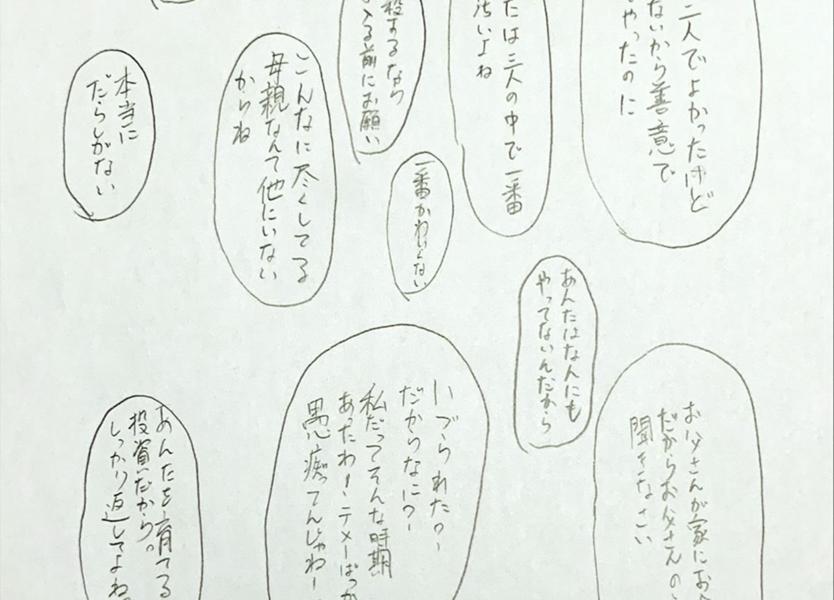 二人でよかったけど
ないから善意で
やったのに
たは三人の中で一番
汚いよね
殺するなら
入る前にお願い
こんなに尽くしてる
母親なんて他にいない
からね
本当に
だらしがない
一番かわいくない
あんたはなんにも
やってないんだから
お父さんが家にお
だからお父さんの
聞きなさい
いびられた?ー
だからなに?ー
私だってそんな時期
あったわ!テメーばっか
愚痴ってんじゃねー
あんたを育てる
投資だから。
しっかり返してよね